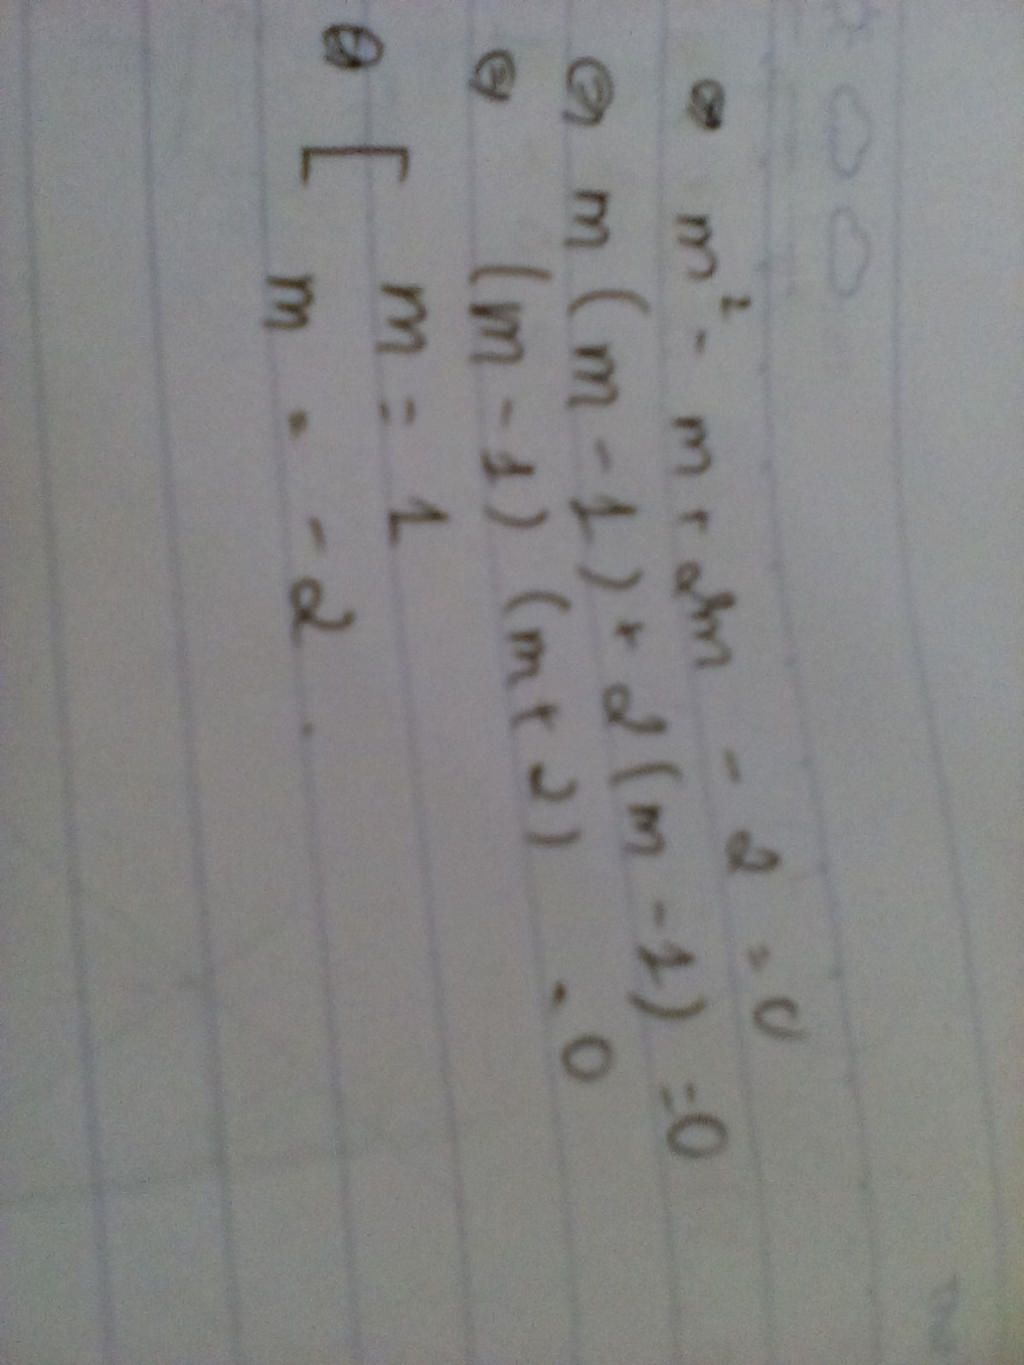 ⇔ m² - m + 2m - 2 = 0
⇔ m (m - 1) + 2 (m - 1) = 0
⇔ (m - 1) (m + 2) = 0
⇔ [ m = 1
m = -2.